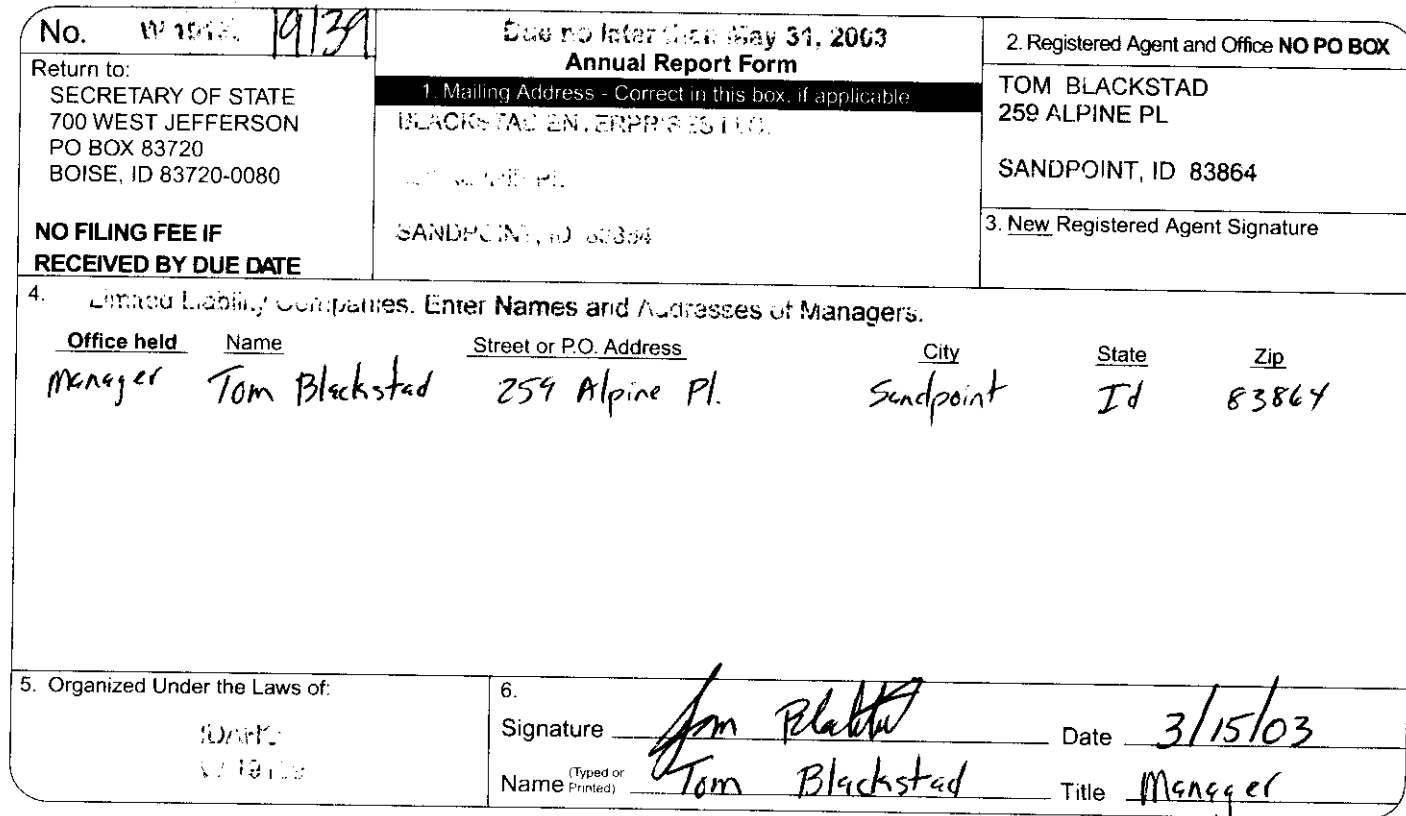 No. 19139
Return to:
SECRETARY OF STATE
700 WEST JEFFERSON
PO BOX 83720
BOISE, ID 83720-0080
NO FILING FEE IF
RECEIVED BY DUE DATE
Due no later than May 31, 2003
Annual Report Form
1. Mailing Address - Correct in this box, if applicable
BLACKSTAD ENTERPRISES LLC.
SANDPOINT, ID 83864
2. Registered Agent and Office NO PO BOX
TOM BLACKSTAD
259 ALPINE PL
SANDPOINT, ID 83864
3. New Registered Agent Signature
4. Limited Liability Companies. Enter Names and Addresses of Managers.
Office held Name Street or P.O. Address City State Zip
Manager Tom Blackstad 259 Alpine Pl. Sandpoint Id 83864
5. Organized Under the Laws of:
IDAHO
6.
Signature Tom Date 3/15/03
Name (Typed or Printed) Tom Blackstad Title Manager